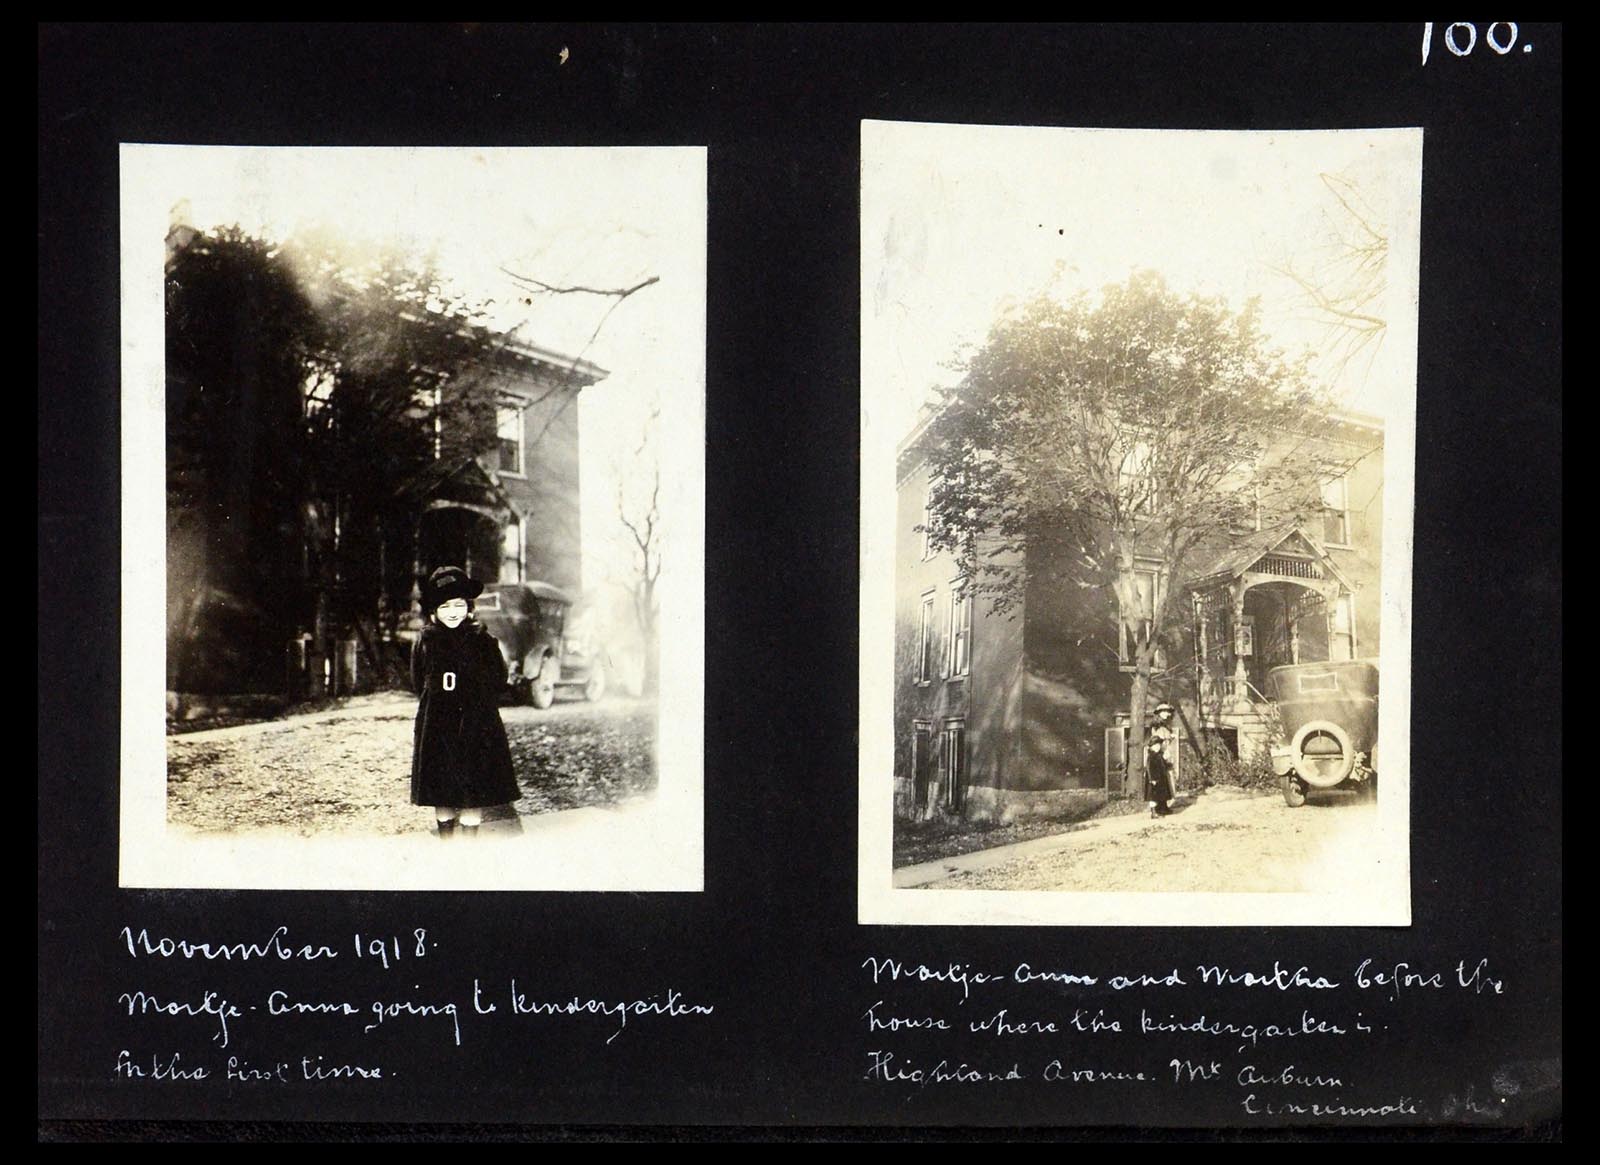 100.
November 1918.
Martje-Anna going to kindergarten
for the first time.
Martje-Anna and Martha before the
house where the kindergarten is.
Highland Avenue. Mt Auburn.
Cincinnati